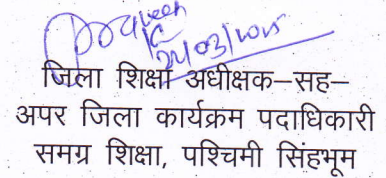 Praveen
24/03/2025
जिला शिक्षा अधीक्षक–सह–
अपर जिला कार्यक्रम पदाधिकारी
समग्र शिक्षा, पश्चिमी सिंहभूम